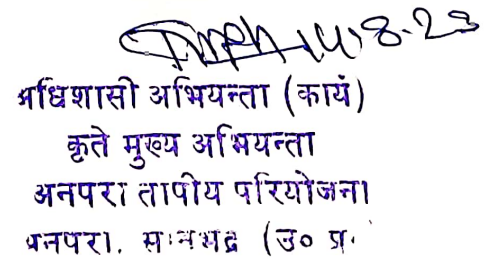 14.8.23
अधिशासी अभियन्ता (कार्य)
कृते मुख्य अभियन्ता
अनपरा तापीय परियोजना
अनपरा. सोनभद्र (उ० प्र.